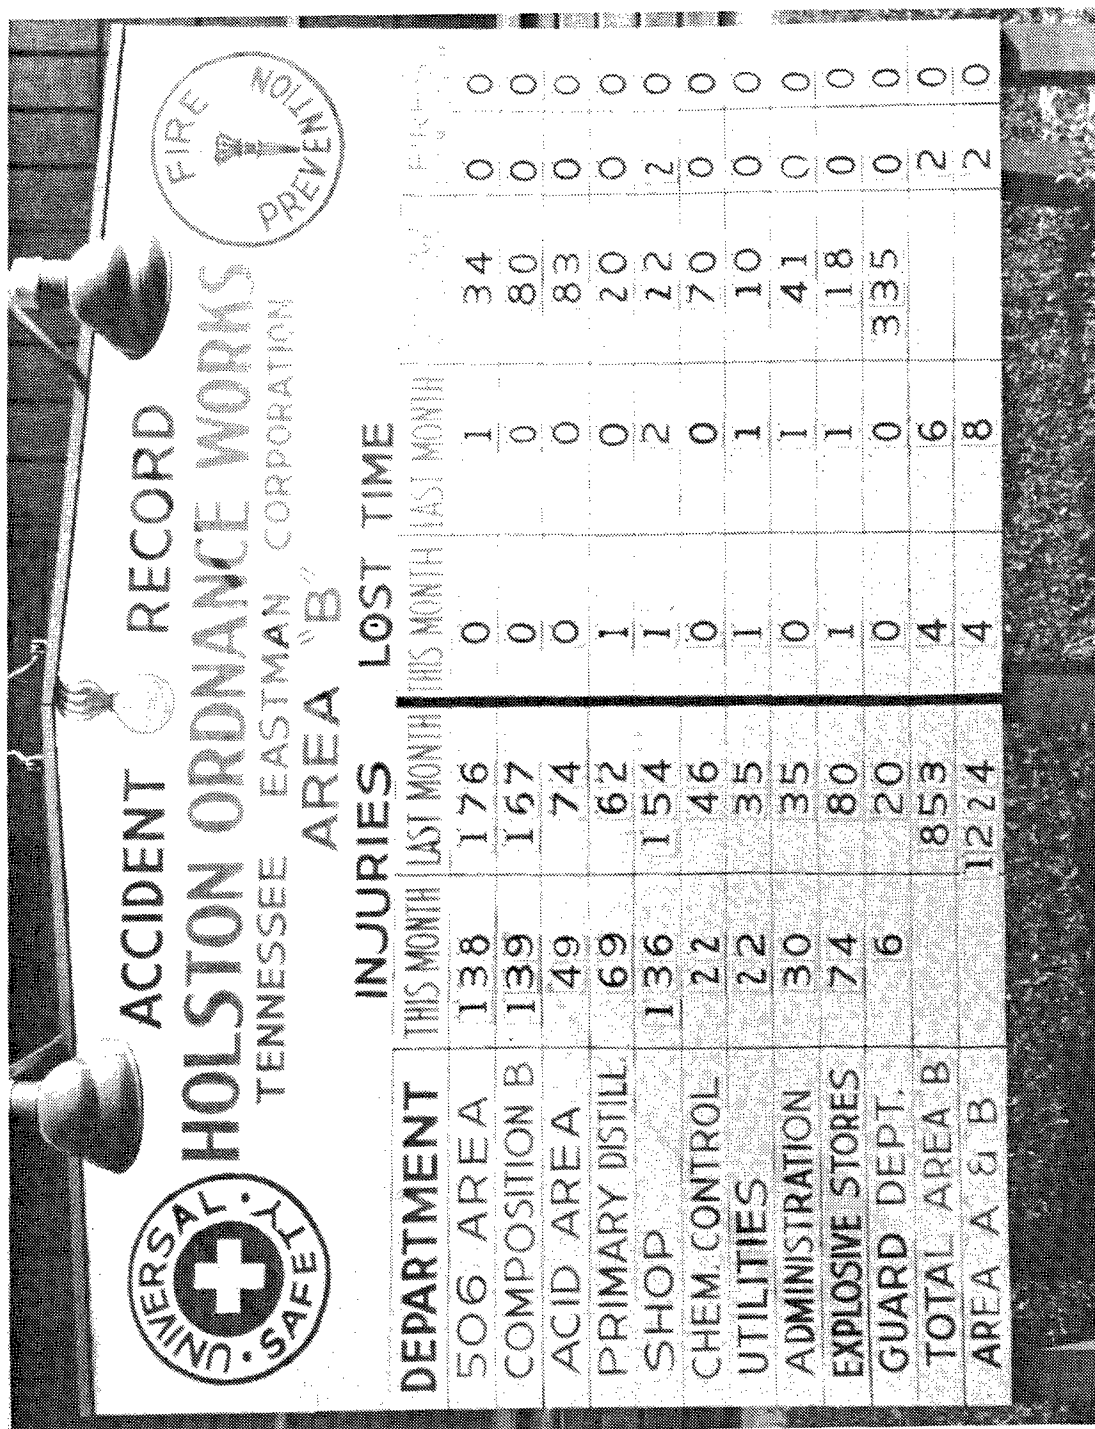 UNIVERSAL · SAFETY ·
ACCIDENT RECORD
FIRE PREVENTION
HOLSTON ORDNANCE WORKS
TENNESSEE EASTMAN CORPORATION
AREA "B"
INJURIES LOST TIME
DEPARTMENT THIS MONTH LAST MONTH THIS MONTH LAST MONTH
506 AREA 138 176 0 1 34 0 0
COMPOSITION B 139 167 0 0 80 0 0
ACID AREA 49 74 0 0 83 0 0
PRIMARY DISTILL. 69 62 1 0 20 0 0
SHOP 136 154 1 2 22 2 0
CHEM. CONTROL 22 46 0 0 70 0 0
UTILITIES 22 35 1 1 10 0 0
ADMINISTRATION 30 35 0 1 41 0 0
EXPLOSIVE STORES 74 80 1 1 18 0 0
GUARD DEPT. 6 20 0 0 335 0 0
TOTAL AREA B 853 4 6 2 0
AREA A & B 1224 4 8 2 0